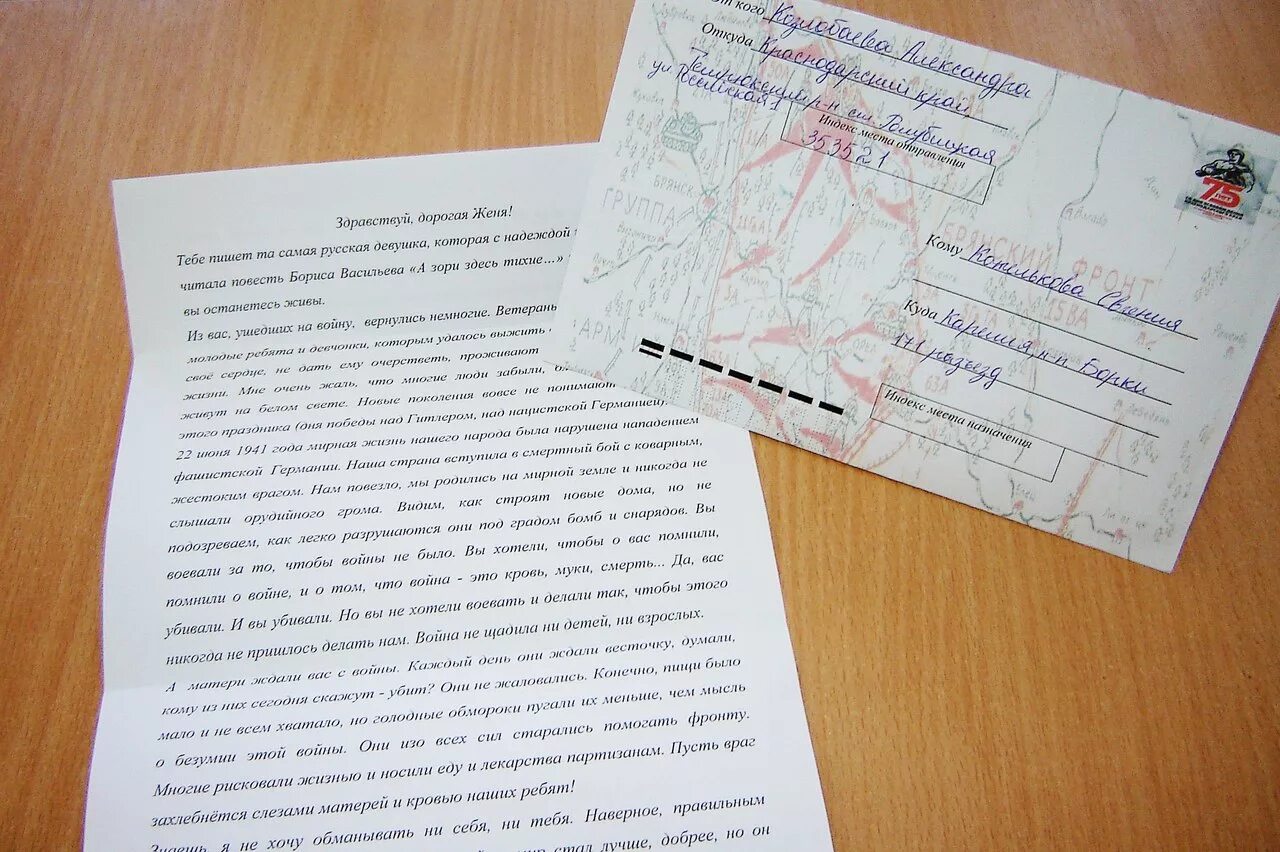 Здравствуй, дорогая Женя!
Тебе пишет та самая русская девушка, которая с надеждой
читала повесть Бориса Васильева «А зори здесь тихие...»
вы останетесь живы.
Из вас, ушедших на войну, вернулись немногие. Ветераны
молодые ребята и девчонки, которым удалось выжить
своё сердце, не дать ему очерстветь, проживают
жизни. Мне очень жаль, что многие люди забыли,
живут на белом свете. Новые поколения вовсе не понимают
этого праздника (дня победы над Гитлером, над нацистской Германией).
22 июня 1941 года мирная жизнь нашего народа была нарушена нападением
фашистской Германии. Наша страна вступила в смертный бой с коварным,
жестоким врагом. Нам повезло, мы родились на мирной земле и никогда не
слышали орудийного грома. Видим, как строят новые дома, но не
подозреваем, как легко разрушаются они под градом бомб и снарядов. Вы
воевали за то, чтобы войны не было. Вы хотели, чтобы о вас помнили,
помнили о войне, и о том, что война - это кровь, муки, смерть... Да, вас
убивали. И вы убивали. Но вы не хотели воевать и делали так, чтобы этого
никогда не пришлось делать нам. Война не щадила ни детей, ни взрослых.
А матери ждали вас с войны. Каждый день они ждали весточку, думали,
кому из них сегодня скажут - убит? Они не жаловались. Конечно, пищи было
мало и не всем хватало, но голодные обмороки пугали их меньше, чем мысль
о безумии этой войны. Они изо всех сил старались помогать фронту.
Многие рисковали жизнью и носили еду и лекарства партизанам. Пусть враг
захлебнётся слезами матерей и кровью наших ребят!
Знаешь, я не хочу обманывать ни себя, ни тебя. Наверное, правильным
стал лучше, добрее, но он
От кого Козлобаева Александра
Откуда Краснодарский край,
Темрюкский р-н ст. Голубицкая
ул Российская 1
Индекс места отправления
353521
75
лет
Кому Комелькова Евгения
Куда Карелия, н.п. Борки
171 разъезд
Индекс места назначения
БРЯНСК
ГРУППА
БРЯНСКИЙ ФРОНТ
АРМ
116А
2ТА
15ВА
63А